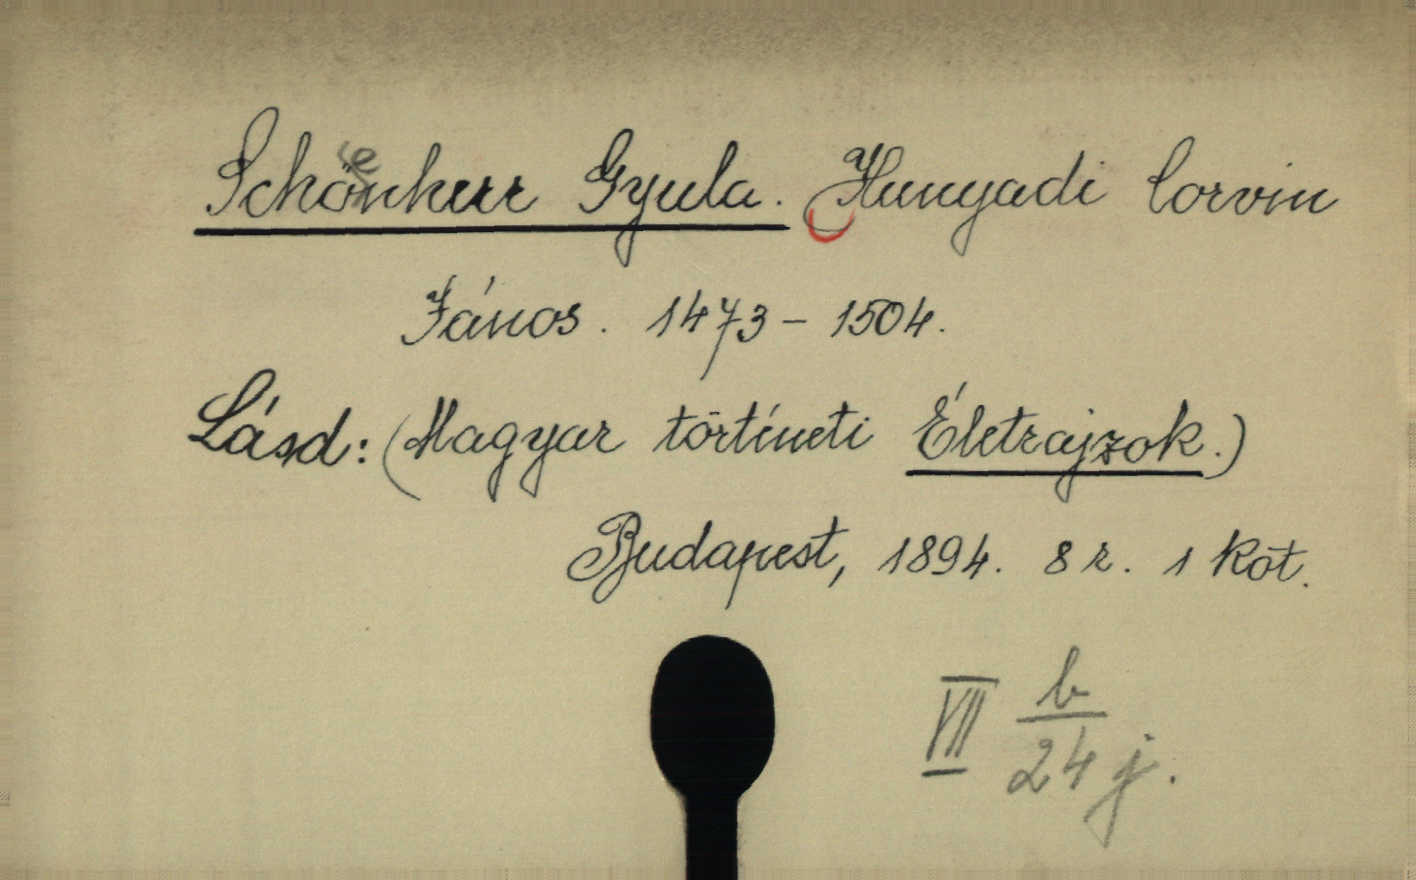 Schönherr Gyula. Hunyadi Corvin
János. 1473 – 1504.
Lásd: (Magyar történeti Életrajzok.)
Budapest, 1894. 8 r. 1 Köt.
VII b/24 j.